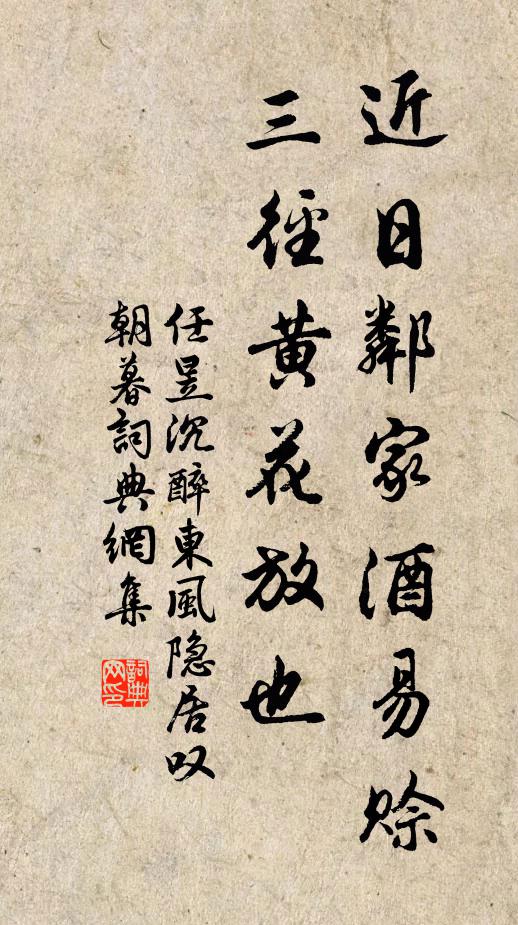 近日鄰家酒易賒
三徑黃花放也
任昱沉醉東風隐居叹
朝暮詞典網集
詞典网印